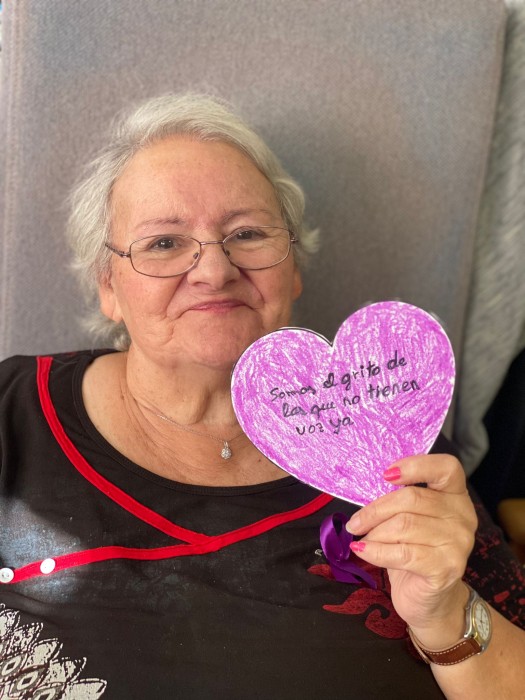 Somos el grito de
las que no tienen
voz ya